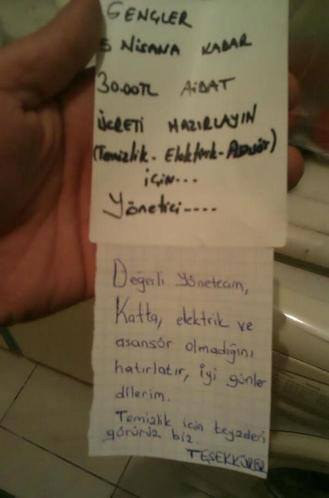 GENÇLER
5 NİSANA KADAR
30.00TL AİDAT
ÜCRETİ HAZIRLAYIN
(Temizlik - Elektrik - Asansör)
için...
Yönetici----
Değerli Yöneticim,
Katta, elektrik ve
asansör olmadığını
hatırlatır, iyi günler
dilerim.
Temizlik için teyzeden
görürüz biz.
TEŞEKKÜRLER